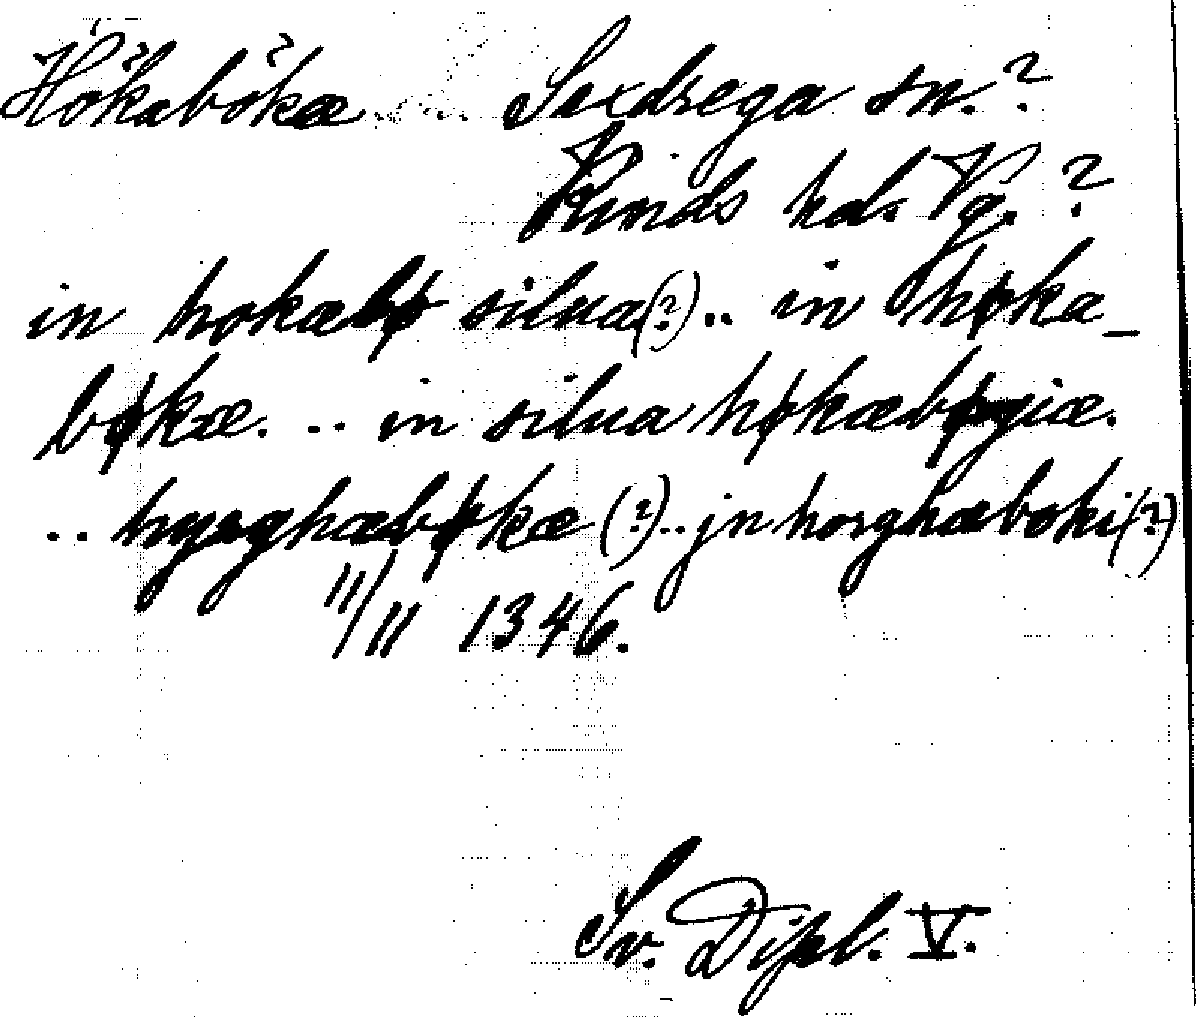 Hökabökæ Sexdrega sn.?
Kinds hd. Vg.?
in hokæbø silua(?).. in høka_
bøkæ. .. in silua høkæbøgiæ.
.. hyæghæbøkæ (?).. jn horghæboki(?)
11/11 1346.
Sv. Dipl. V.